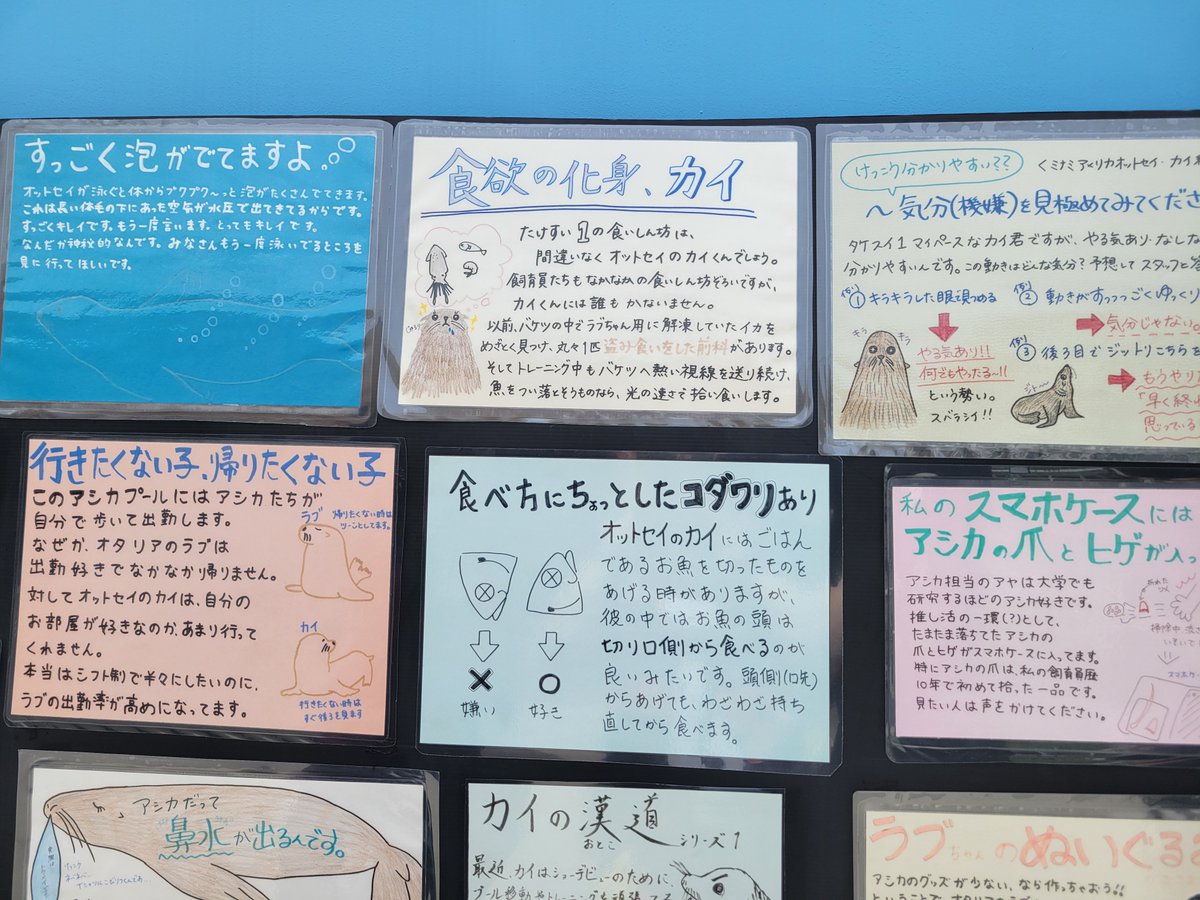 すっごく泡がでてますよ。
オットセイが泳ぐと体からブクブク～っと泡がたくさんでてきます。
これは長い体毛の下にあった空気が水圧で出てきてるからです。
すっごくキレイです。もう一度言います。とってもキレイです。
なんだか神秘的なんです。みなさんもう一度泳いでるところを
見に行ってほしいです。
食欲の化身、カイ
たけすい1の食いしん坊は、
間違いなくオットセイのカイくんでしょう。
飼育員たちもなかなかの食いしん坊ぞろいですが、
カイくんには誰もかないません。
以前、バケツの中でラブちゃん用に解凍していたイカを
めざとく見つけ、丸々1匹盗み食いをした前科があります。
そしてトレーニング中もバケツへ熱い視線を送り続け、
魚をつい落とそうものなら、光の速さで拾い食いします。
けっこう分かりやすい??
くミナミアメリカオットセイ・カイ
～気分(機嫌)を見極めてみてくださ
タケスイ1マイペースなカイ君ですが、やる気あり・なし
分かりやすいんです。この動きはどんな気分?予想してスタッフと
例① キラキラした眼で見つめる
キラ
キラ
やる気あり!!
何でもやったる～!!
という勢い。
スバラシイ!!
例② 動きがすっっっごくゆっくり
気分じゃない
例③ 後ろ目でジットリこちらを
ジトー
もうやり
「早く終
思っている
行きたくない子、帰りたくない子
このアシカプールにはアシカたちが
自分で歩いて出勤します。
なぜか、オタリアのラブは
出勤好きでなかなか帰りません。
対してオットセイのカイは、自分の
お部屋が好きなのか、あまり行って
くれません。
本当はシフト制で半々にしたいのに、
ラブの出勤率が高めになってます。
ラブ
帰りたくない時は
ツーンとしてます。
カイ
行きたくない時は
すぐ後ろを見ます
食べ方にちょっとしたコダワリあり
オットセイのカイにはごはん
であるお魚を切ったものを
あげる時がありますが、
彼の中ではお魚の頭は
切り口側から食べるのが
良いみたいです。頭側(口先)
からあげても、わざわざ持ち
直してから食べます。
嫌い
好き
私のスマホケースには
アシカの爪とヒゲが入っ
アシカ担当のアヤは大学でも
研究するほどのアシカ好きです。
推し活の一環(?)として、
たまたま落ちてたアシカの
爪とヒゲがスマホケースに入ってます。
特にアシカの爪は、私の飼育員歴
10年で初めて拾った一品です。
見たい人は声をかけてください。
アシカだって
鼻水が出るんです。
カイの漢道
おとこ
シリーズ1
最近、カイはショーデビューのために、
プール移動やトレーニングを頑張ってる
ラブちゃんのぬいぐる
アシカのグッズが少ない、なら作っちゃおう!!